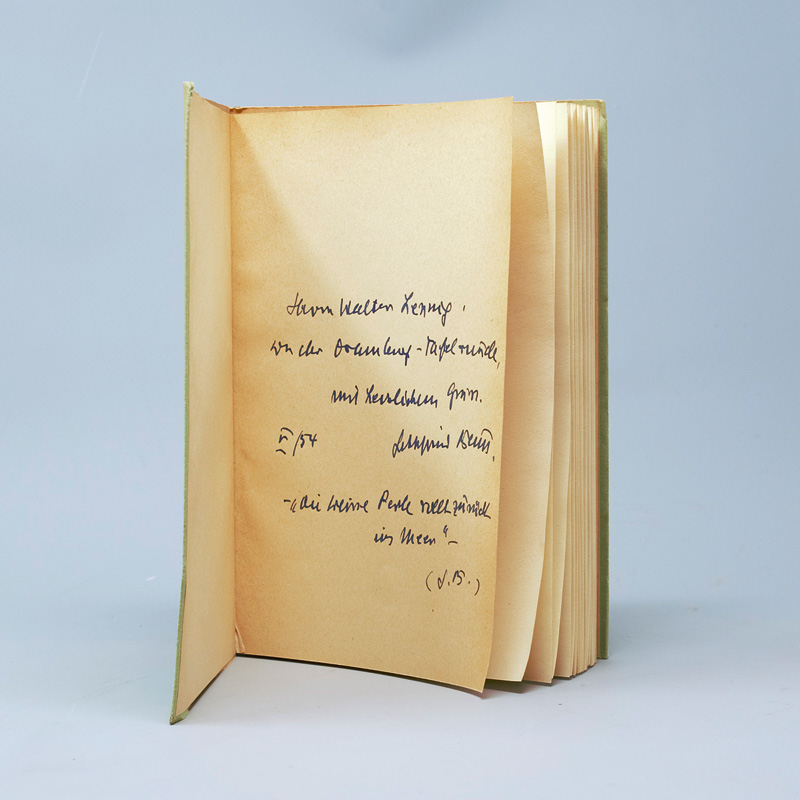 Herrn Walter Lennig,
von der Dramburg-Tafelrunde,
mit herzlichem Gruss.
V/54 Gottfried Benn.
-"die weisse Perle rollt zurück
ins Meer"-
(G.B.)